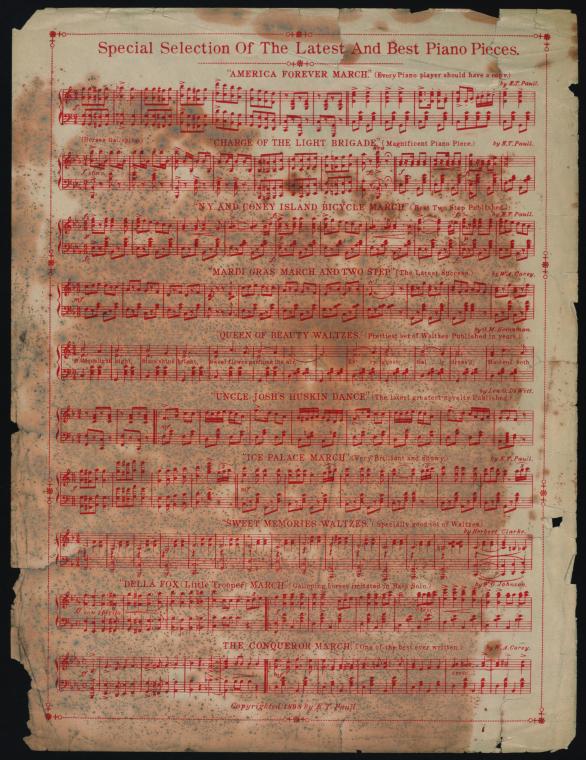 Special Selection Of The Latest And Best Piano Pieces.
"AMERICA FOREVER MARCH." (Every Piano player should have a copy.)
by E.T. Paull.
(Horses Galloping.)
"CHARGE OF THE LIGHT BRIGADE" (Magnificent Piano Piece.) by E.T. Paull.
"N.Y. AND CONEY ISLAND BICYCLE MARCH" (Best Two Step Published.)
by E.T. Paull.
"MARDI GRAS MARCH AND TWO STEP" (The Latest Success.) by W.A. Corey.
mf
by G.M.
QUEEN OF BEAUTY WALTZES. (Prettiest set of Waltzes Published in years.)
Moonlight bright, Stars shine bright, Sweet flowers perfume the air,
by Leo. O. DeWitt.
"UNCLE JOSH'S HUSKIN DANCE" (The latest greatest novelty Published.)
"ICE PALACE MARCH" (Very Brilliant and showy.) by E.T. Paull.
mf
"SWEET MEMORIES WALTZES. (Specially good set of Waltzes)
by Herbert Clarke.
DELLA FOX (Little Trooper) MARCH. (Galloping horses imitated in Bass Solo.) Johnson.
THE CONQUEROR MARCH. (One of the best ever written.) by W.A. Corey.
Copyrighted 1898 by E.T. Paull.